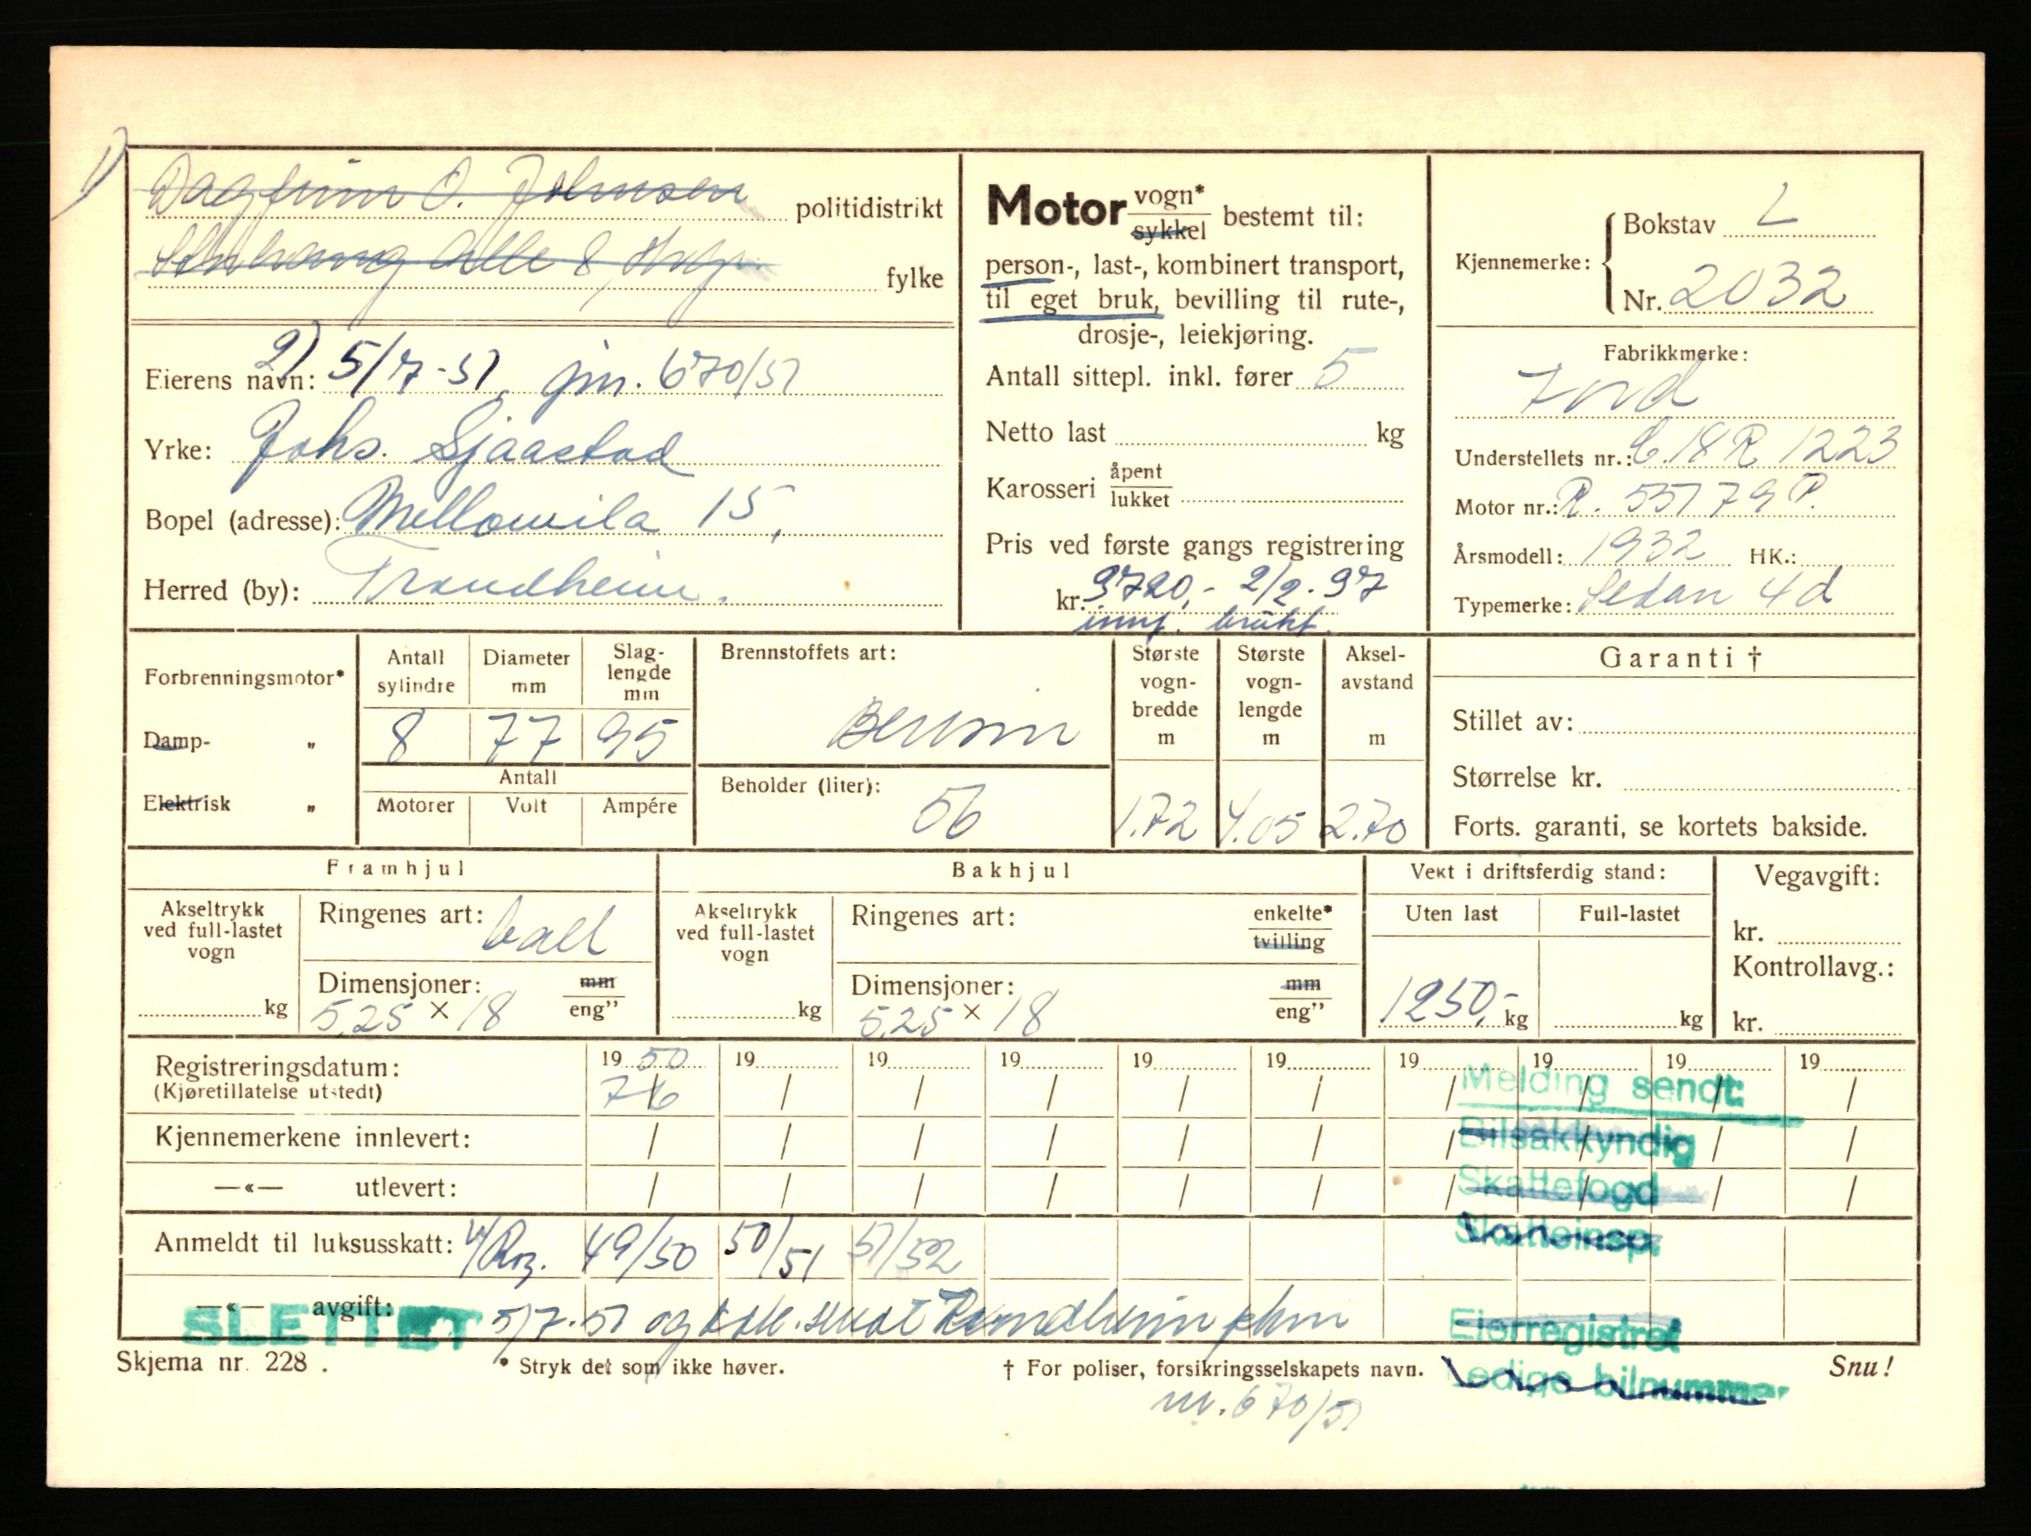 1)
Dagfinn O. Johnsen politidistrikt
Alle 8, fylke
2) 5/7-51, jnr. 670/51
Eierens navn:
Yrke: Johs. Sjaastad
Bopel (adresse): Mellomila 15,
Herred (by): Trondheim.
Motor vogn* sykkel bestemt til:
person-, last-, kombinert transport,
til eget bruk, bevilling til rute-,
drosje-, leiekjøring.
Antall sittepl. inkl. fører 5
Netto last kg
Karosseri åpent lukket
Pris ved første gangs registrering
kr. 3720,- 2/2-37
innf. brukt.
Kjennemerke: Bokstav L
Nr. 2032
Fabrikkmerke:
Ford
Understellets nr.: C.18 R 1223
Motor nr.: R. 55179 P.
Årsmodell: 1932 HK.:
Typemerke: Sedan 4d
Forbrenningsmotor*
Damp- „
Elektrisk „
Antall sylindre Diameter mm Slag-lengde mm
8 77 95
Antall
Motorer Volt Ampére
Brennstoffets art:
Bensin
Beholder (liter):
56
Største vogn-bredde m Største vogn-lengde m Aksel-avstand m
1.72 4.05 2.70
Garanti †
Stillet av:
Størrelse kr.
Forts. garanti, se kortets bakside.
Framhjul
Akseltrykk ved full-lastet vogn
kg
Ringenes art: ball
Dimensjoner: mm eng”
5.25 × 18
Bakhjul
Akseltrykk ved full-lastet vogn
kg
Ringenes art: enkelte* tvilling
Dimensjoner: mm eng”
5.25 × 18
Vekt i driftsferdig stand:
Uten last Full-lastet
1250,- kg kg
Vegavgift:
kr.
Kontrollavg.:
kr.
Registreringsdatum: 19 50 19 19 19 19 19 19 19 19 19
(Kjøretillatelse utstedt) 7/6 / / / / / / / / /
Kjennemerkene innlevert: / / / / / / / / / /
—«— utlevert: / / / / / / / / / /
Anmeldt til luksusskatt: 49/50 50/51 51/52
—«— avgift: 5/7-51 og sendt Trondheim pkm
SLETTET
Melding sendt:
Bilsakkyndig
Skattefogd
Skatteinsp.
Eierregistret
Ledige bilnummer
Skjema nr. 228.
* Stryk det som ikke høver.
† For poliser, forsikringsselskapets navn.
Snu!
nr. 670/51